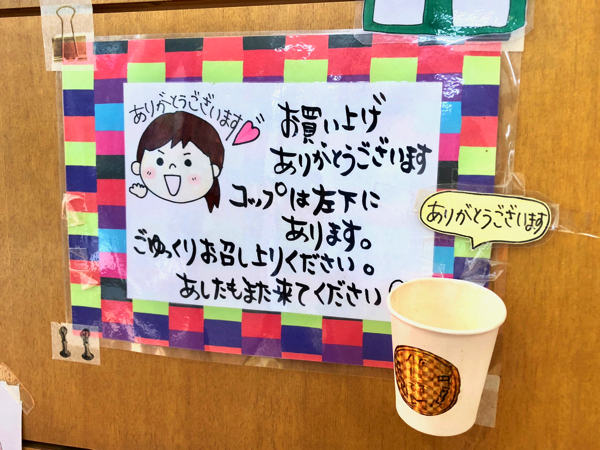 ありがとうございます
お買い上げ
ありがとうございます
コップは左下に
あります。
ごゆっくりお召し上りください。
あしたもまた来てください
ありがとうございます